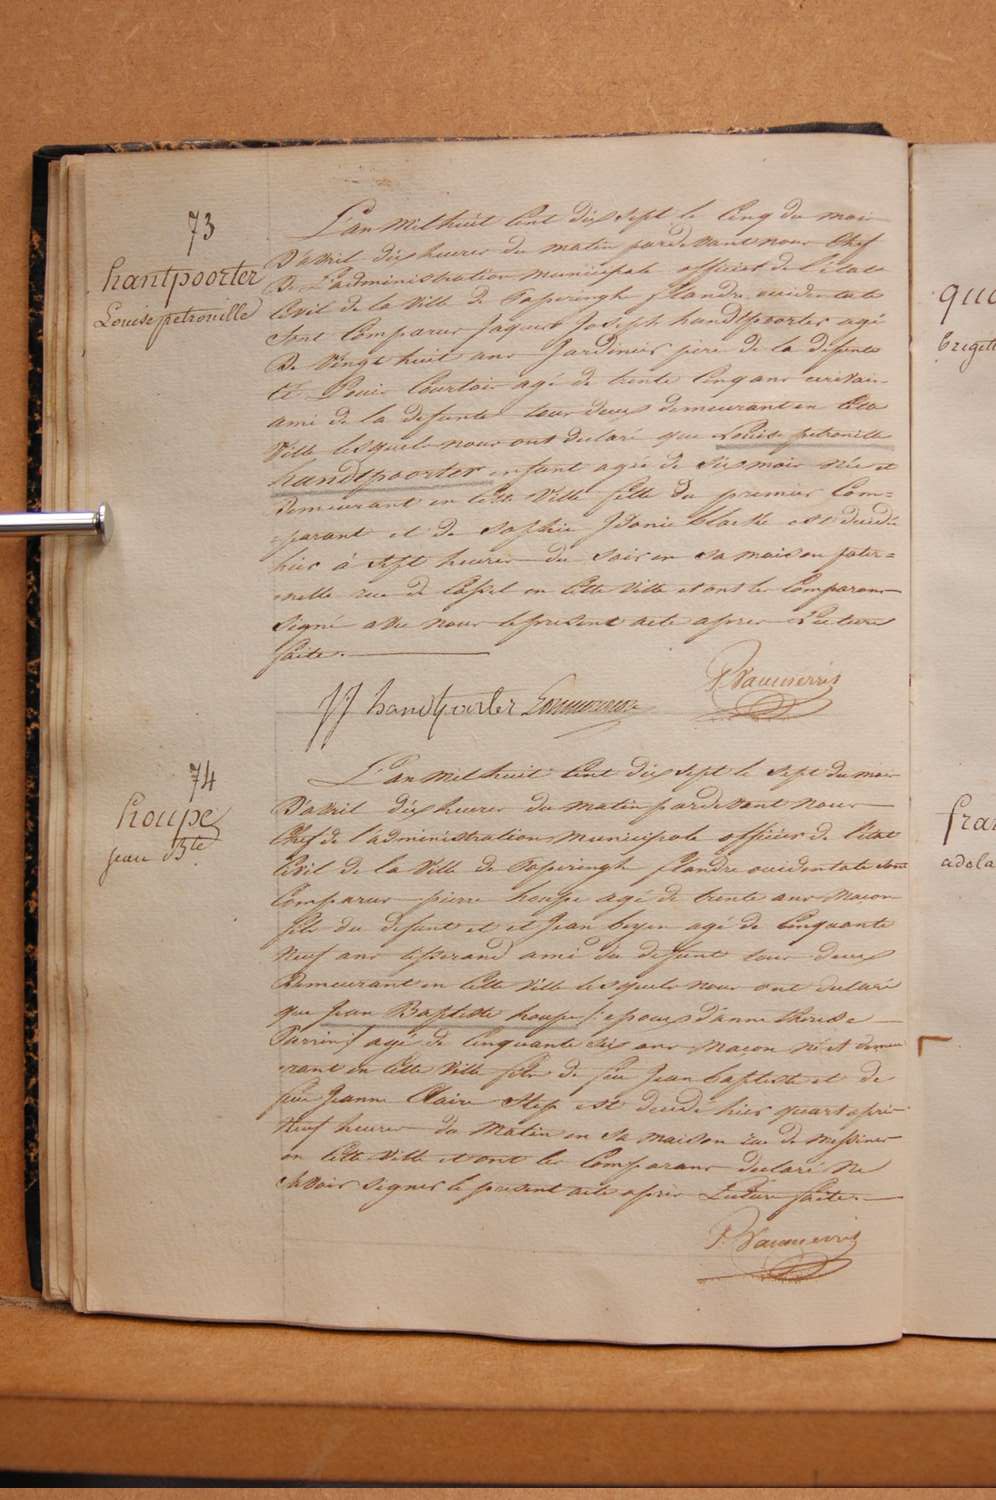 73
hantpoorter
Louise petronille
L'an mil huit cent dix sept le cinq du mois
D'avril dix heures du matin pardevant nous Chef
De L'administration municipale officier de l'état
Civil de la Ville de Poperinghe flandre occidentale
Sont Comparus Jaques Joseph handtpoorter agé
De Vingt huit ans Jardinier pere de la defunte
Et Louis Courtois agé de trente Cinq ans
ami de la defunte tous deux demeurant en Cette
Ville lesquels nous ont declaré que Louise petronille
handtpoorter enfant agée de six mois née et
Demeurant en Cette Ville fille du premier Com=
parant et de Sophie est decedé
hier à sept heures du Soir en sa maison pater=
nelle rue de Cassel en Cette Ville et ont les Comparans
Signé avec nous le present acte apres Lecture
faite.
JJ handtpoorter
74
houpe
Jean Bte
L'an mil huit Cent dix sept le sept du mois
D'avril dix heures du matin pardevant nous
Chef de l'administration municipale officier de l'état
Civil de la Ville de Poperinghe flandre occidentale sont
Comparus pierre houpe agé de trente ans Macon
fils du defunt et et Jean agé de Cinquante
Neuf ans tisserand ami du defunt tous deux
Demeurant en Cette Ville lesquels nous ont declaré
que Jean Baptiste houpe /: epoux d'anne therese
agé de Cinquante six ans Macon né et demeu
rant en Cette Ville fils de feu Jean baptiste et de
feue Jeanne Claire est decedé hier quart apres
Neuf heures du Matin en sa maison rue de messines
en Cette Ville et ont les Comparans declaré ne
Savoir signer le present acte apres Lecture faite.
quo
brigitte
fran
adela